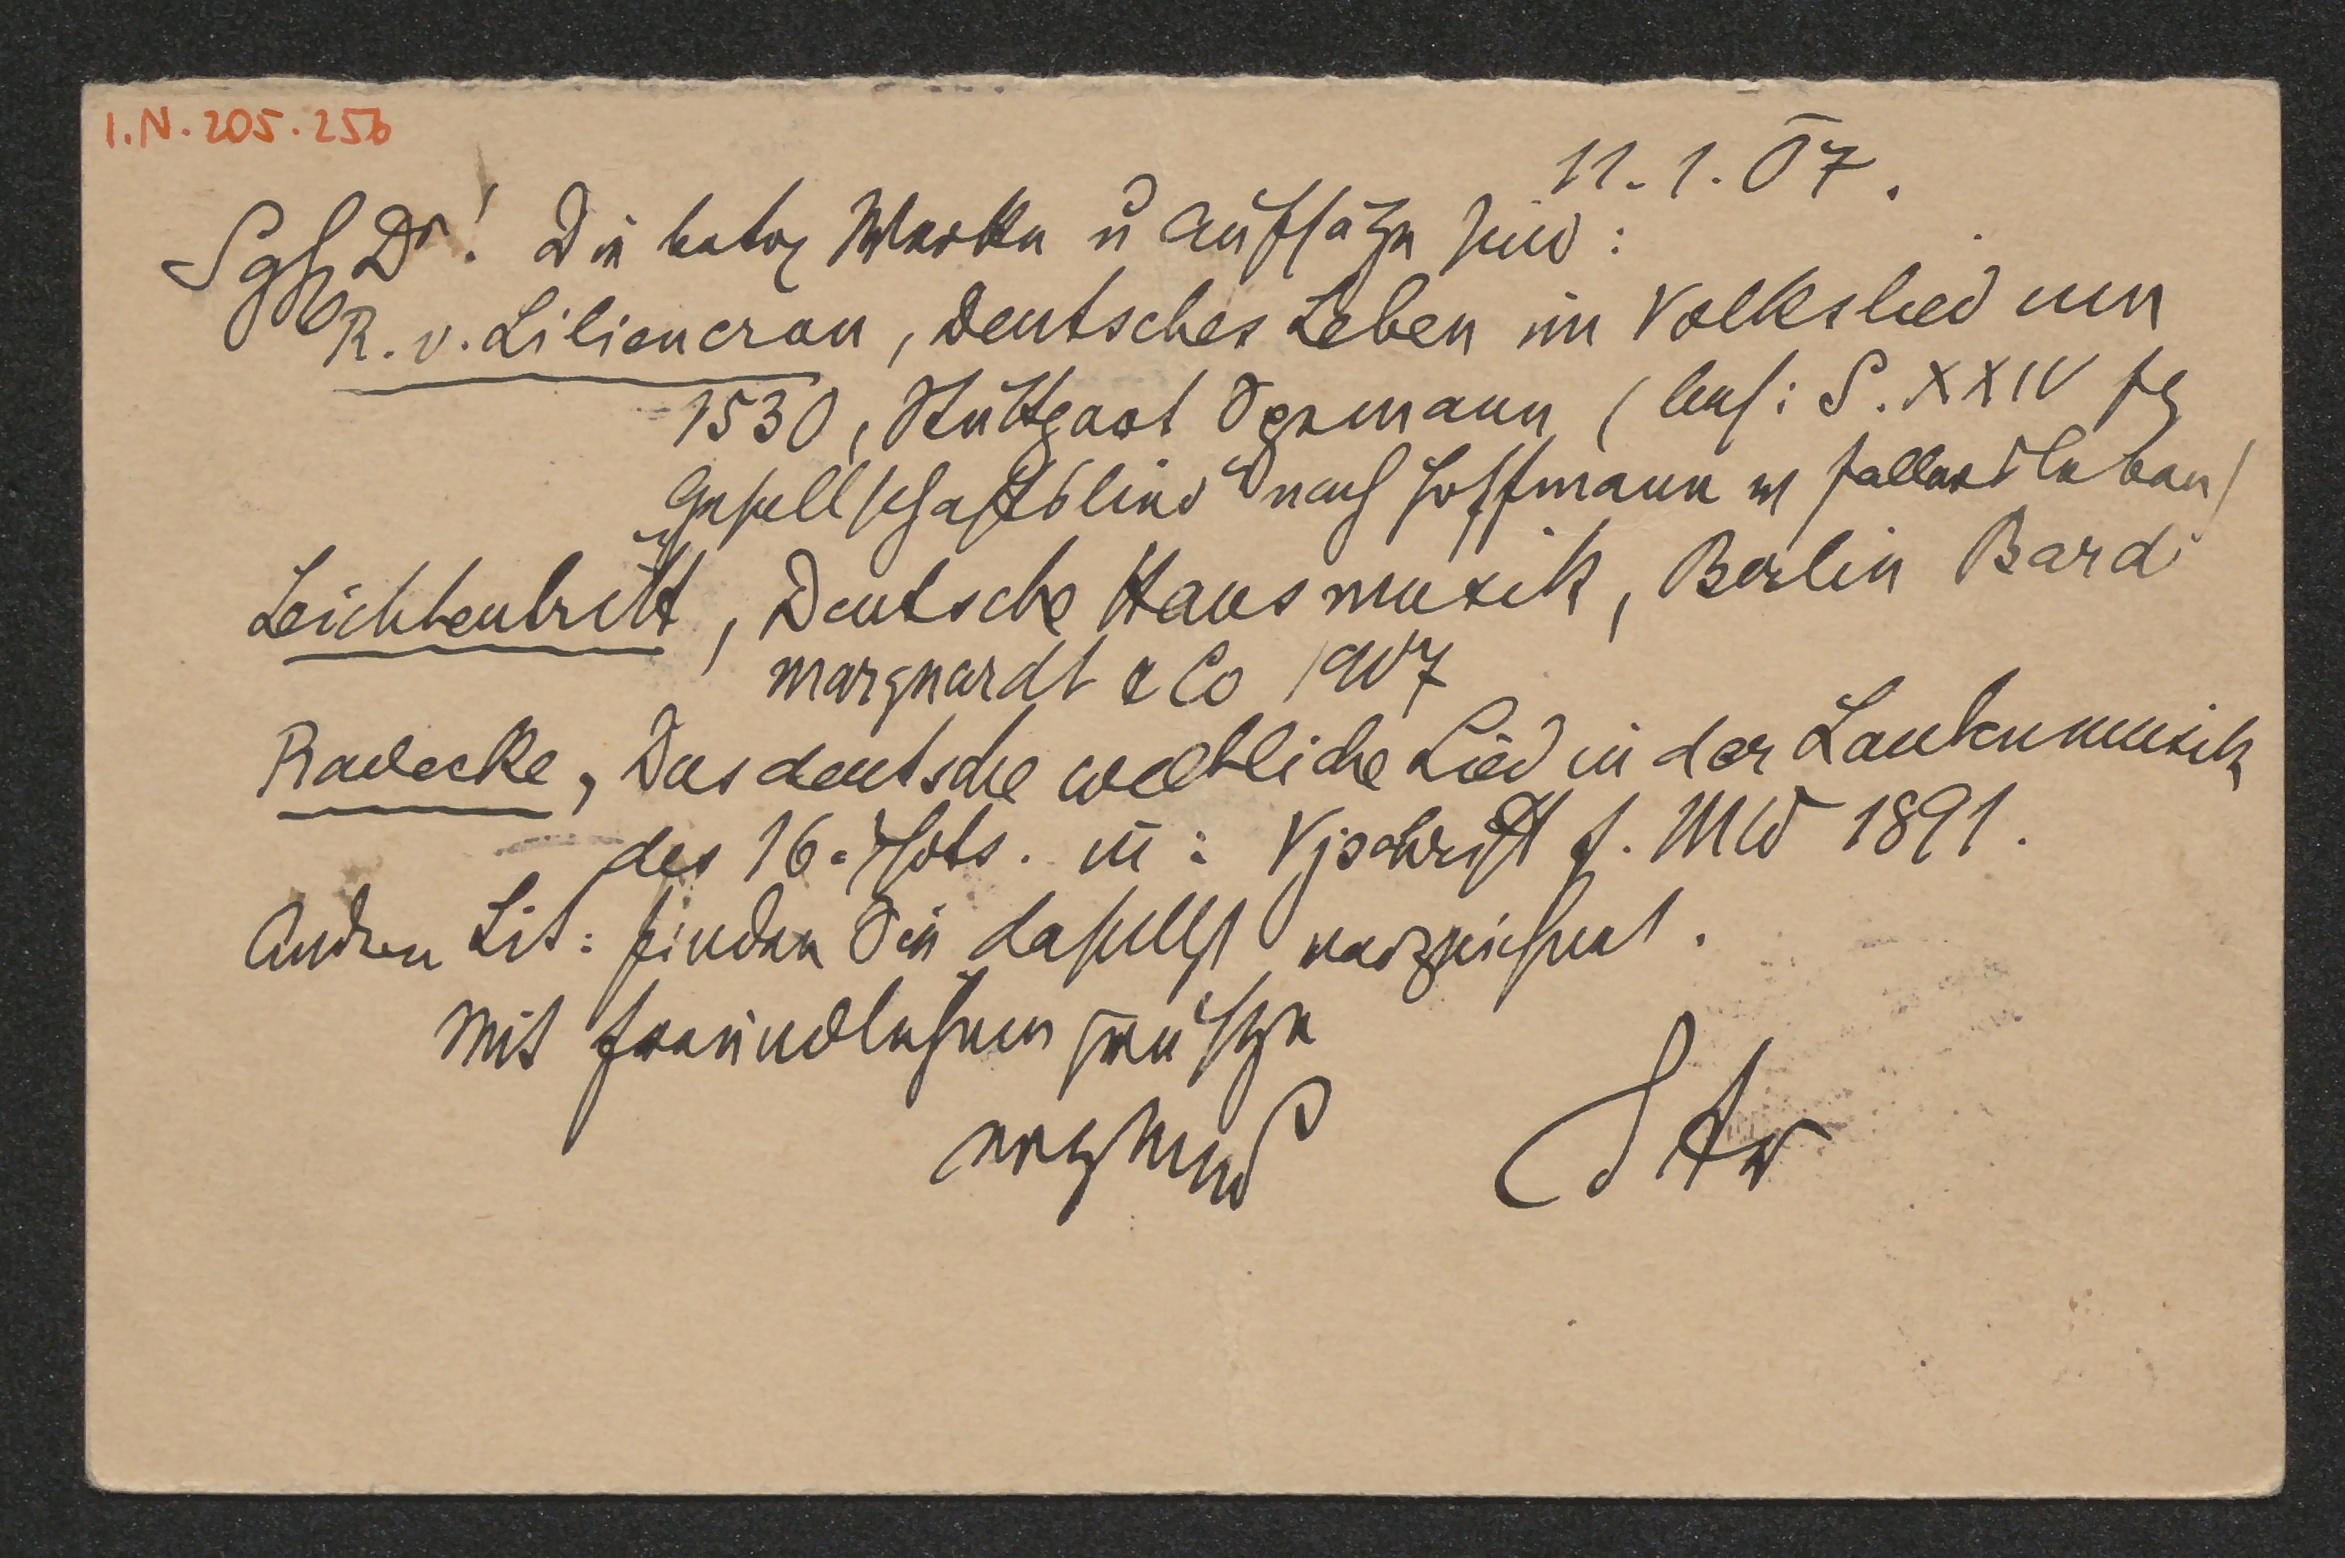 I.N. 205.256
11.1.07.
Sgh Dr! Die betr Werke u Aufsätze sind:
R. v. Liliencron, Deutsches Leben im Volkslied um
1530, Stuttgart Spemann (bes: S. XXIV fg
Gesellschaftslied nach Hoffmann v Fallersleben)
Leichtentritt, Deutsche Hausmusik, Berlin Bard
Marquardt & Co 1907
Radecke, Das deutsche weltliche Lied in der Lautenmusik
des 16. Jhdts. in: Vjschrift f. MW 1891.
Andere Lit: finden Sie daselbst verzeichnet.
Mit freundlichem Grusse
ergebenst